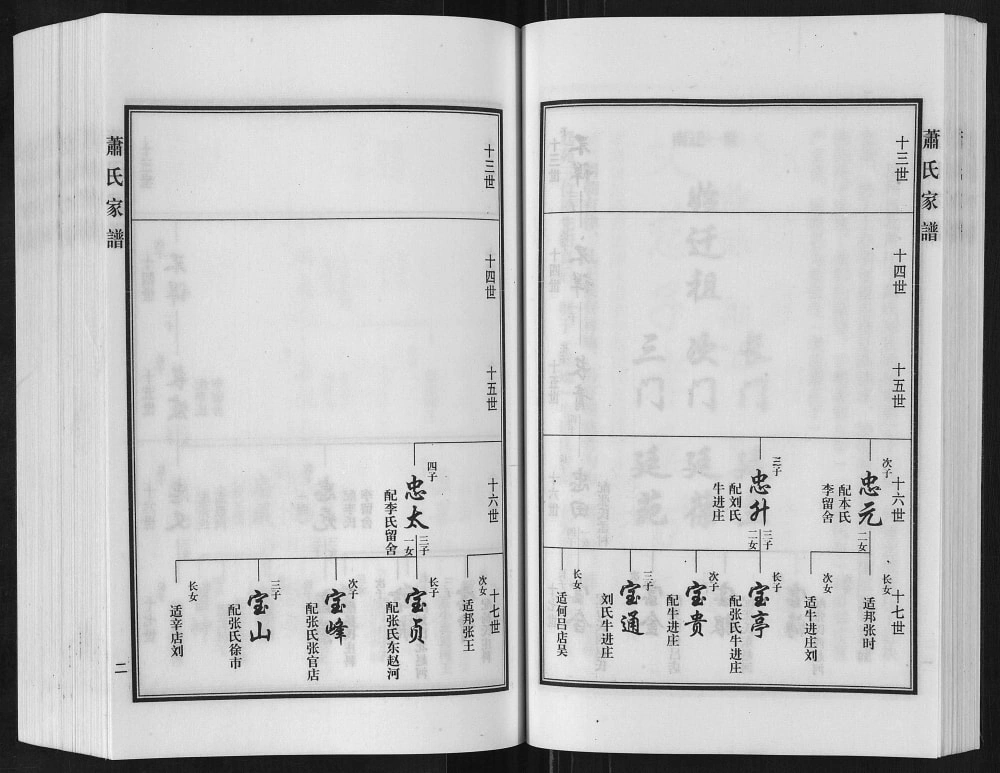 蕭氏家譜
十三世
十四世
十五世
十六世
十七世
次子
忠元
配本氏
李留舍
二女
长女
适邦张时
次女
适牛进庄刘
三子
忠升
配刘氏
牛进庄
三子
二女
长子
宝亭
配张氏牛进庄
次子
宝贵
配牛进庄
三子
宝通
刘氏牛进庄
长女
适何吕店吴
十三世
十四世
十五世
十六世
十七世
次女
适邦张王
四子
忠太
配李氏留舍
三子
一女
长子
宝贞
配张氏东赵河
次子
宝峰
配张氏张官店
三子
宝山
配张氏徐市
长女
适辛店刘
蕭氏家譜
二